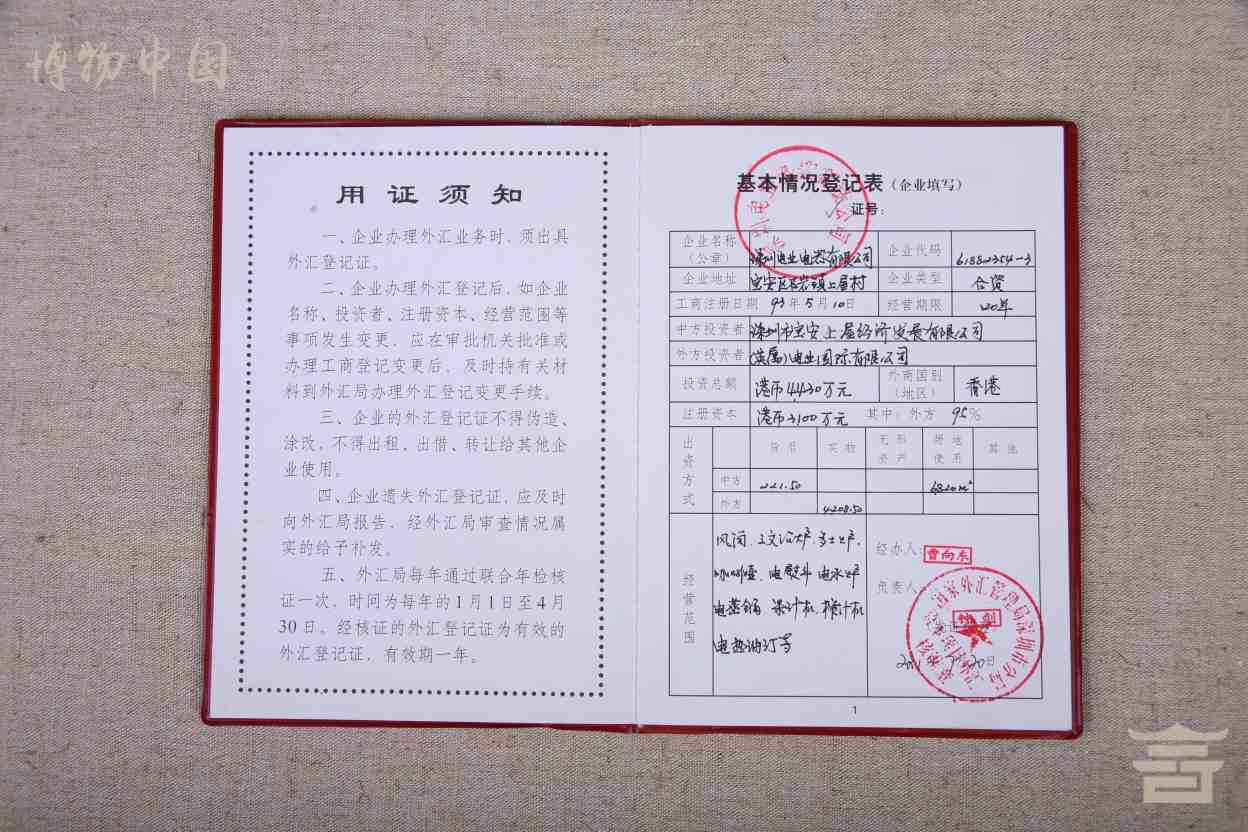 博物中国
用证须知
一、企业办理外汇业务时，须出具
外汇登记证。
二、企业办理外汇登记后，如企业
名称、投资者、注册资本、经营范围等
事项发生变更，应在审批机关批准或
办理工商登记变更后，及时持有关材
料到外汇局办理外汇登记变更手续。
三、企业的外汇登记证不得伪造、
涂改，不得出租、出借、转让给其他企
业使用。
四、企业遗失外汇登记证，应及时
向外汇局报告，经外汇局审查情况属
实的给予补发。
五、外汇局每年通过联合年检核
证一次，时间为每年的1月1日至4月
30日。经核证的外汇登记证为有效的
外汇登记证，有效期一年。
基本情况登记表（企业填写）
证号：
企业名称（公章） 深圳电业电器有限公司 企业代码 61882354-3
企业地址 宝安区石岩镇上屋村 企业类型 合资
工商注册日期 93年5月10日 经营期限 20年
中方投资者 深圳市宝安上屋经济发展有限公司
外方投资者 (英属)电业国际有限公司
投资总额 港币4430万元 外商国别（地区） 香港
注册资本 港币3100万元 其中：外方 95%
出资方式 货币 实物 无形资产 场地使用 其他
中方 221.50 6820m²
外方 4208.50
经营范围
电熨斗
电蒸锅 果汁机 榨汁机
电热油汀等
经办人：曹向东
负责人
国家外汇管理局深圳市分局
日
1